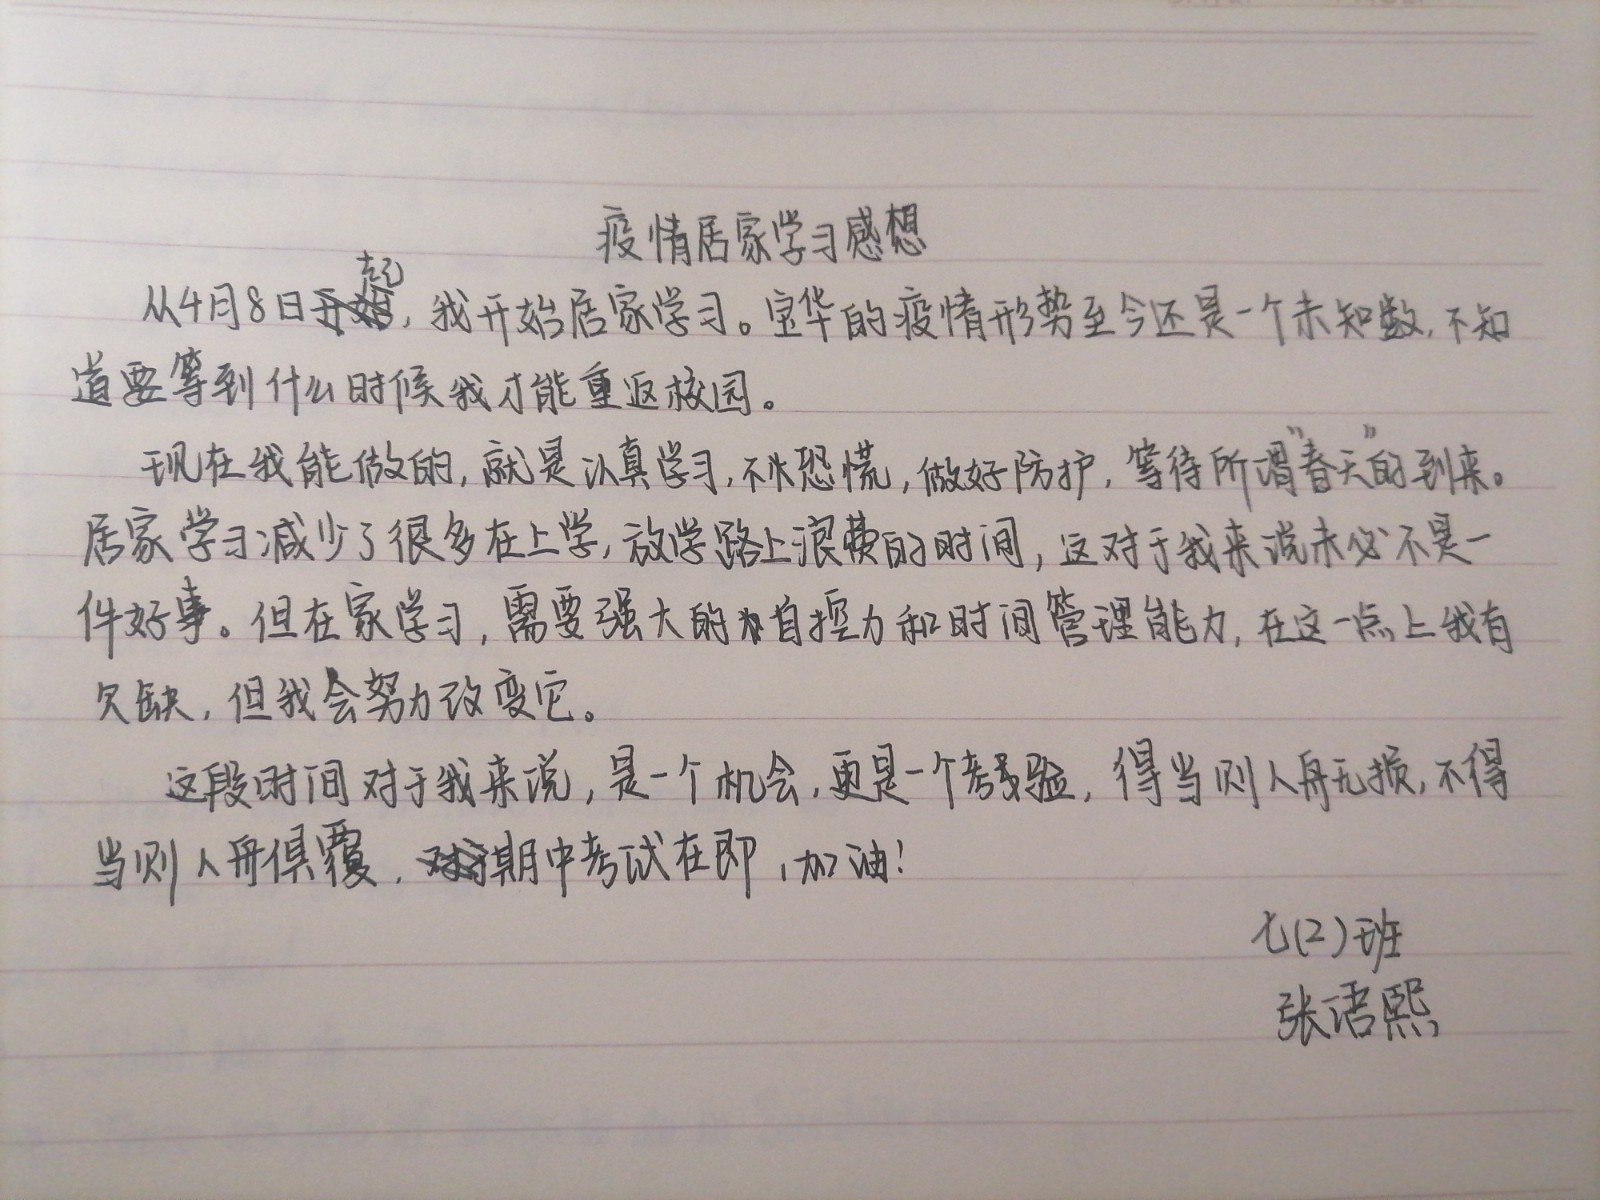 疫情居家学习感想
从4月8日起,我开始居家学习。宝华的疫情形势至今还是一个未知数,不知
道要等到什么时候我才能重返校园。
现在我能做的,就是认真学习,不恐慌,做好防护,等待所谓“春天”的到来。
居家学习减少了很多在上学,放学路上浪费的时间,这对于我来说未必不是一
件好事。但在家学习,需要强大的自控力和时间管理能力,在这一点上我有
欠缺,但我会努力改变它。
这段时间对于我来说,是一个机会,更是一个考验,得当则人舟无损,不得
当则人舟俱覆,期中考试在即,加油!
七(2)班
张语熙